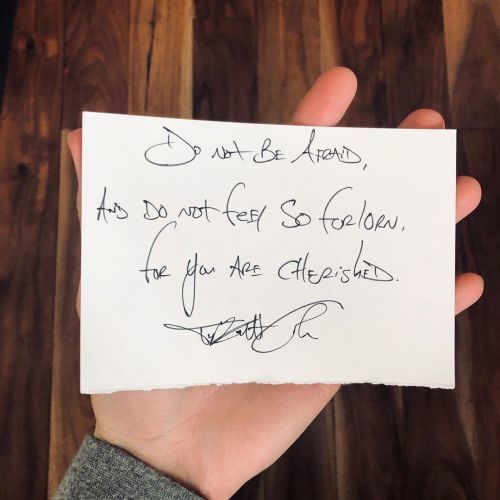 Do not Be Afraid,
And Do not feel So forlorn,
for you Are Cherished.